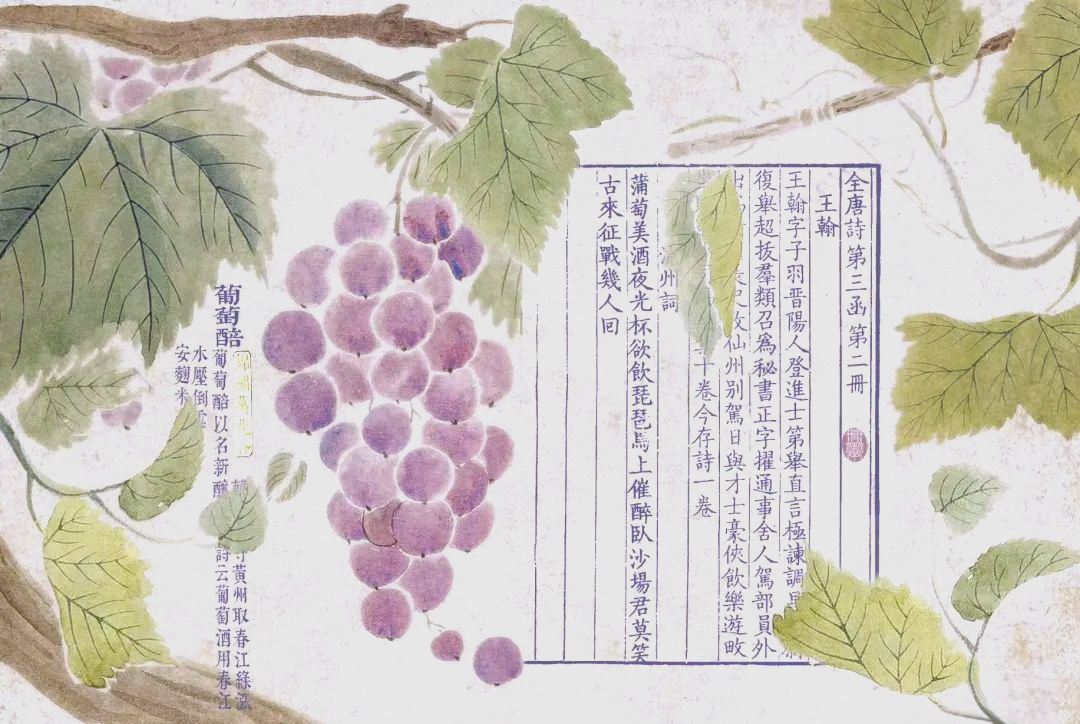 全唐詩第三函第二冊
王翰
王翰字子羽晋陽人登進士第舉直言極諫調
復舉超拔羣類召爲秘書正字擢通事舍人駕部員外
出 改仙州別駕日與才士豪俠飲樂遊畋
十卷今存詩一卷
州詞
蒲萄美酒夜光杯欲飲琵琶馬上催醉臥沙場君莫笑
古來征戰幾人回
葡萄醅
黃州取春江綠漲
葡萄醅以名新釀 詩云葡萄酒用春江
水壓倒
安麴米